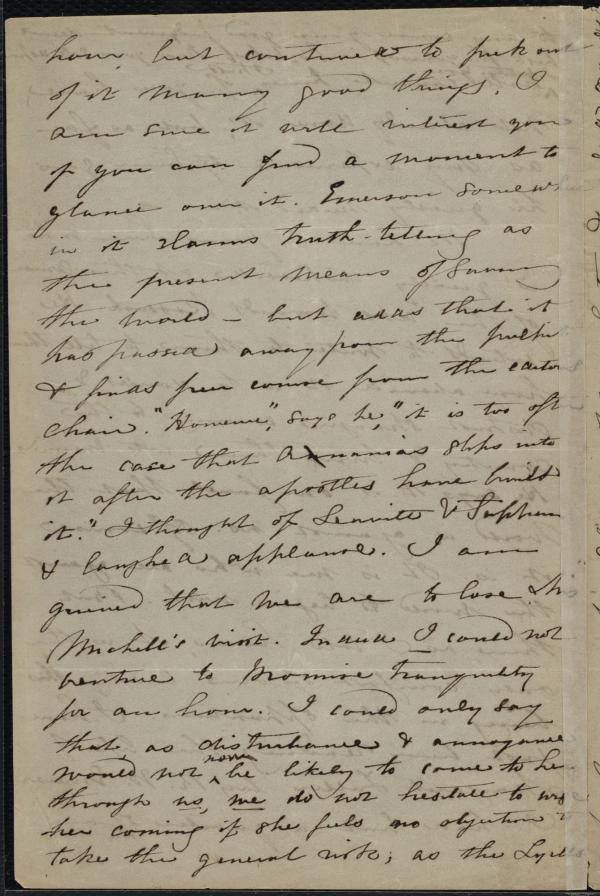 hour, but continued to pick out
of it many good things. I
am sure it will interest you
if you can find a moment to
glance over it. Emerson somewh
in it claims truth-telling as
the present means of saving
the world – but adds that it
has passed away from the pulpit
& finds free course from the editors
chair. "However", says he, "it is too oft
the case that Ananias slips into
it after the apostles have built
it." I thought of Leavitt &
& laughed applause. I am
grieved that we are to lose
Michell's visit. Indeed I could not
venture to promise tranquility
for an hour. I could only say
that, as disturbance & annoyance
would not now be likely to come to her
through us, we do not hesitate to urge
her coming if she feels no objection to
take the general risk; as the Lyells